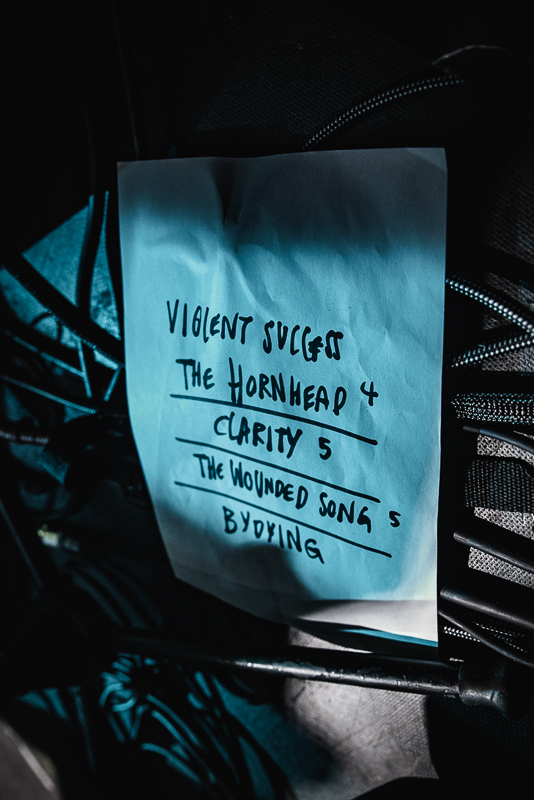 VIOLENT SUCCESS
THE HORNHEAD 4
CLARITY 5
THE WOUNDED SONG 5
BYDYING